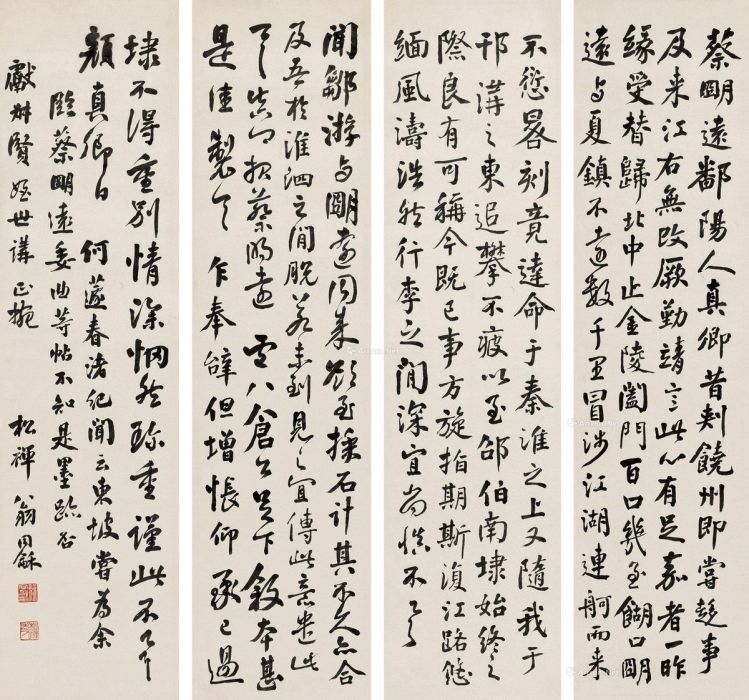 蔡明遠鄱陽人真卿昔刺饒州即嘗趍事
及來江右無改厥勤靖言此心有足嘉者一昨
緣受替歸北中止金陵闔門百口幾至餬口明
遠与夏鎮不遠數千里冒涉江湖連舸而來
不愆晷刻竟達命于秦淮之上又隨我于
邗溝之東追攀不疲以至邵伯南埭始終之
際良有可稱今既已事方旋指期斯復江路悠
緬風濤浩然行李之間深宜尚慎不具
聞鄒游与明遠同來欲至採石計其不久亦合
及吾於淮泗之間脫若未到見之宜傳此意遣此
不具真卿報蔡明遠 八倉公足下敘本甚
是佳製 乍奉辭但增悵仰承已過
埭不得重別情深惘然珍重謹此不具
顏真卿曰 何薳春渚紀聞云東坡嘗為余
臨蔡明遠委曲等帖不知是墨跡否
獻叔賢姪世講正捥 松禪翁同龢